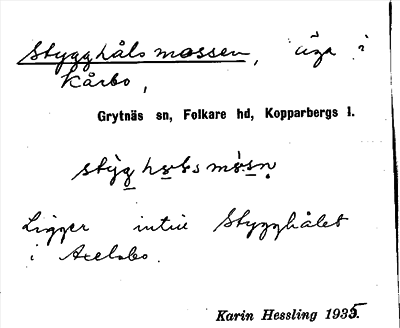 Stygghålsmossen, äga i
Kårbo,
Grytnäs sn, Folkare hd, Kopparbergs l.
Ligger intill Stygghålet
i Axelsbo.
Karin Hessling 1935.